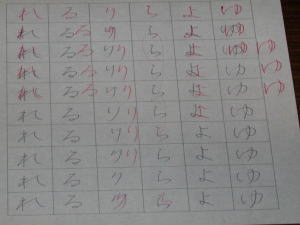 れ る り ら よ ゆ
れ る る り ら よ ゆ
れ る る り り ら よ ゆ ゆ ゆ
れ る る り り ら よ ゆ ゆ
れ る る り り ら よ ゆ ゆ
れ る り り ら よ ゆ
れ る り り ら よ ゆ
れ る り り ら よ ゆ
れ る り ら よ ゆ
れ る り ら よ ゆ